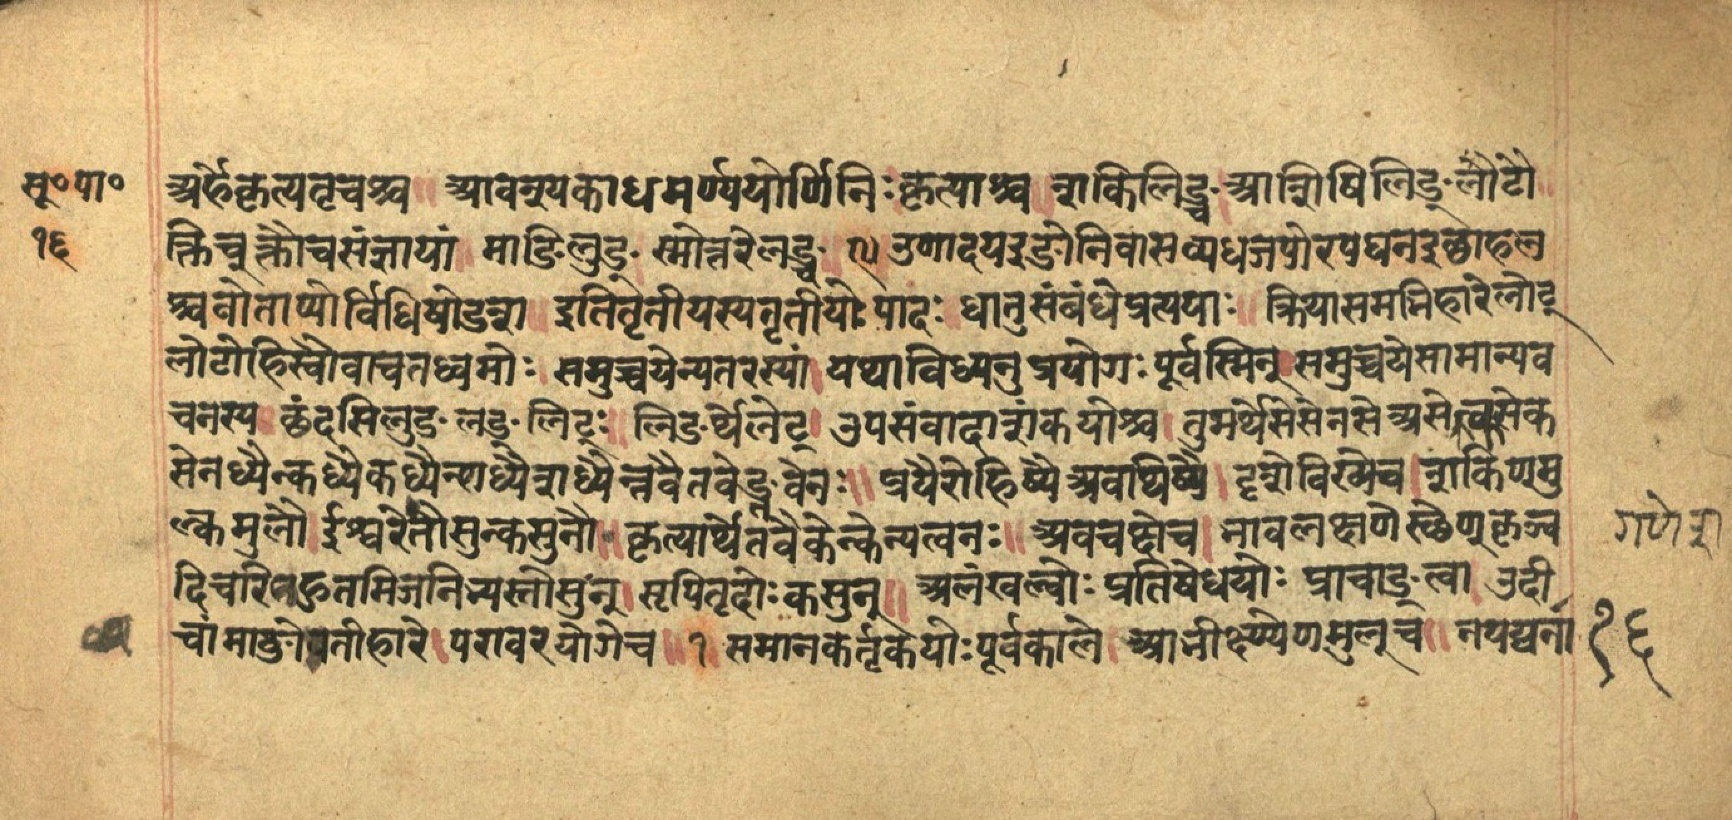 सू०पा०
१६
अर्हेकृत्यतृचश्च ॥ आवश्यकाधमर्ण्ययोर्णिनिः कृत्याश्च ॥ शकिलिङ्च । आशिषिलिङ्लोटौ ॥
क्तिच्क्तौचसंज्ञायां ॥ माङिलुङ् स्मोत्तरेलङ्च उणादयइङोनिवासव्यधजपोरपघनइछाहल
श्चवोताप्योर्विधिषोडश ॥ इतितृतीयस्यतृतीयः पादः ॥ धातुसंबंधेप्रत्ययाः ॥ क्रियासमभिहारेलोट्
लोटोहिस्वौवाचतध्वमोः । समुच्चयेन्यतरस्यां । यथाविध्यनुप्रयोगः पूर्वस्मिन् । समुच्चयेसामान्यव
चनस्य ॥ छंदसिलुङ् लङ् लिटः ॥ लिङर्थेलेट् । उपसंवादाशंकयोश्च । तुमर्थेसेसेनसेअसेन्क्सेक
सेनध्यैन्कध्यैकध्यैन्शध्यैशध्यैन्तवैतवेङ्तवेनः ॥ प्रयैरोहिष्यैअव्यथिष्यै । दृशेविख्येच । शकिणमु
ल्कमुलौ । ईश्वरेतोसुन्कसुनौ ॥ कृत्यार्थेतवैकेन्केन्यत्वनः ॥ अवचक्षेच । भावलक्षणेस्थेण्कृञ्व
दिचरिहुतमिजनिभ्यस्तोसुन् । सृपितृदोः कसुन् ॥ अलंखल्वोः प्रतिषेधयोः प्राचाङ्त्वा । उदी
चांमाङोव्यतीहारे । परावरयोगेच ॥ १ समानकर्तृकयोः पूर्वकाले । आभीक्ष्ण्येणमुल्च ॥ नयद्यना
गणेश
१६